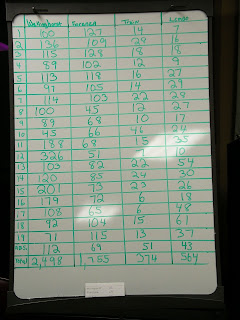 Forecast Train Lunda
1 100 127 14 7
2 136 109 28 16
3 115 128 18 18
4 89 102 12 9
5 113 118 16 27
6 97 105 14 29
7 114 103 22 28
8 100 45 12 27
9 89 68 10 17
10 45 66 46 24
11 188 68 15 35
12 326 51 7 10
13 103 82 22 54
14 120 85 24 30
15 201 73 23 26
16 179 72 6 18
17 108 65 6 48
18 92 104 15 61
19 71 115 13 37
ADS. 112 69 51 43
Total 2,498 1,755 374 564